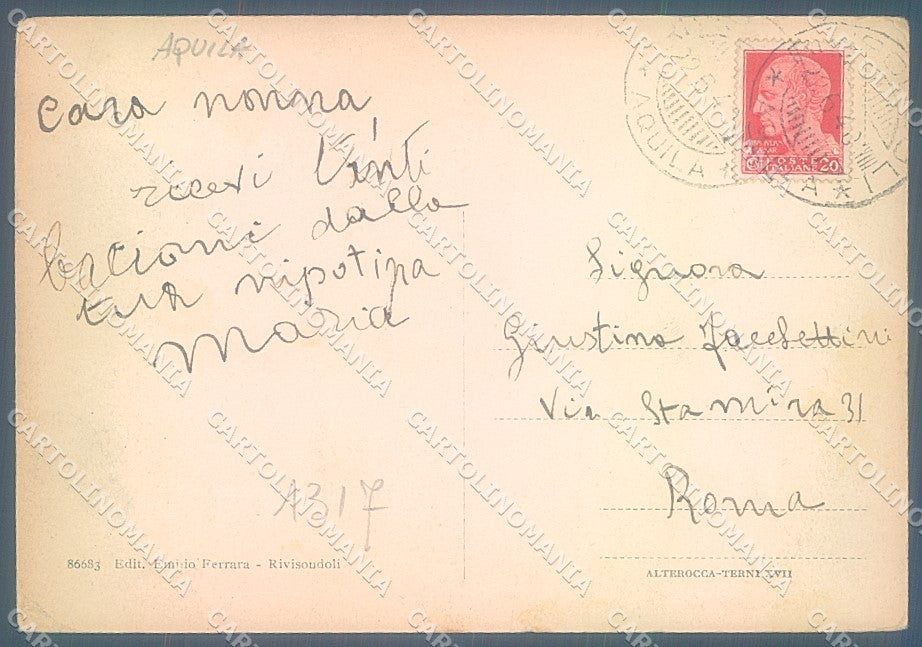 AQUILA
Cara nonna
ricevi tanti
bacioni dalla
tua nipotina
Maria
A317
86683 Edit. Emidio Ferrara - Rivisondoli
AQUILA
POSTE ITALIANE
20
Signora
Giustina
Via Stamira 31
Roma
ALTEROCCA-TERNI XVII
CARTOLINOMANIA